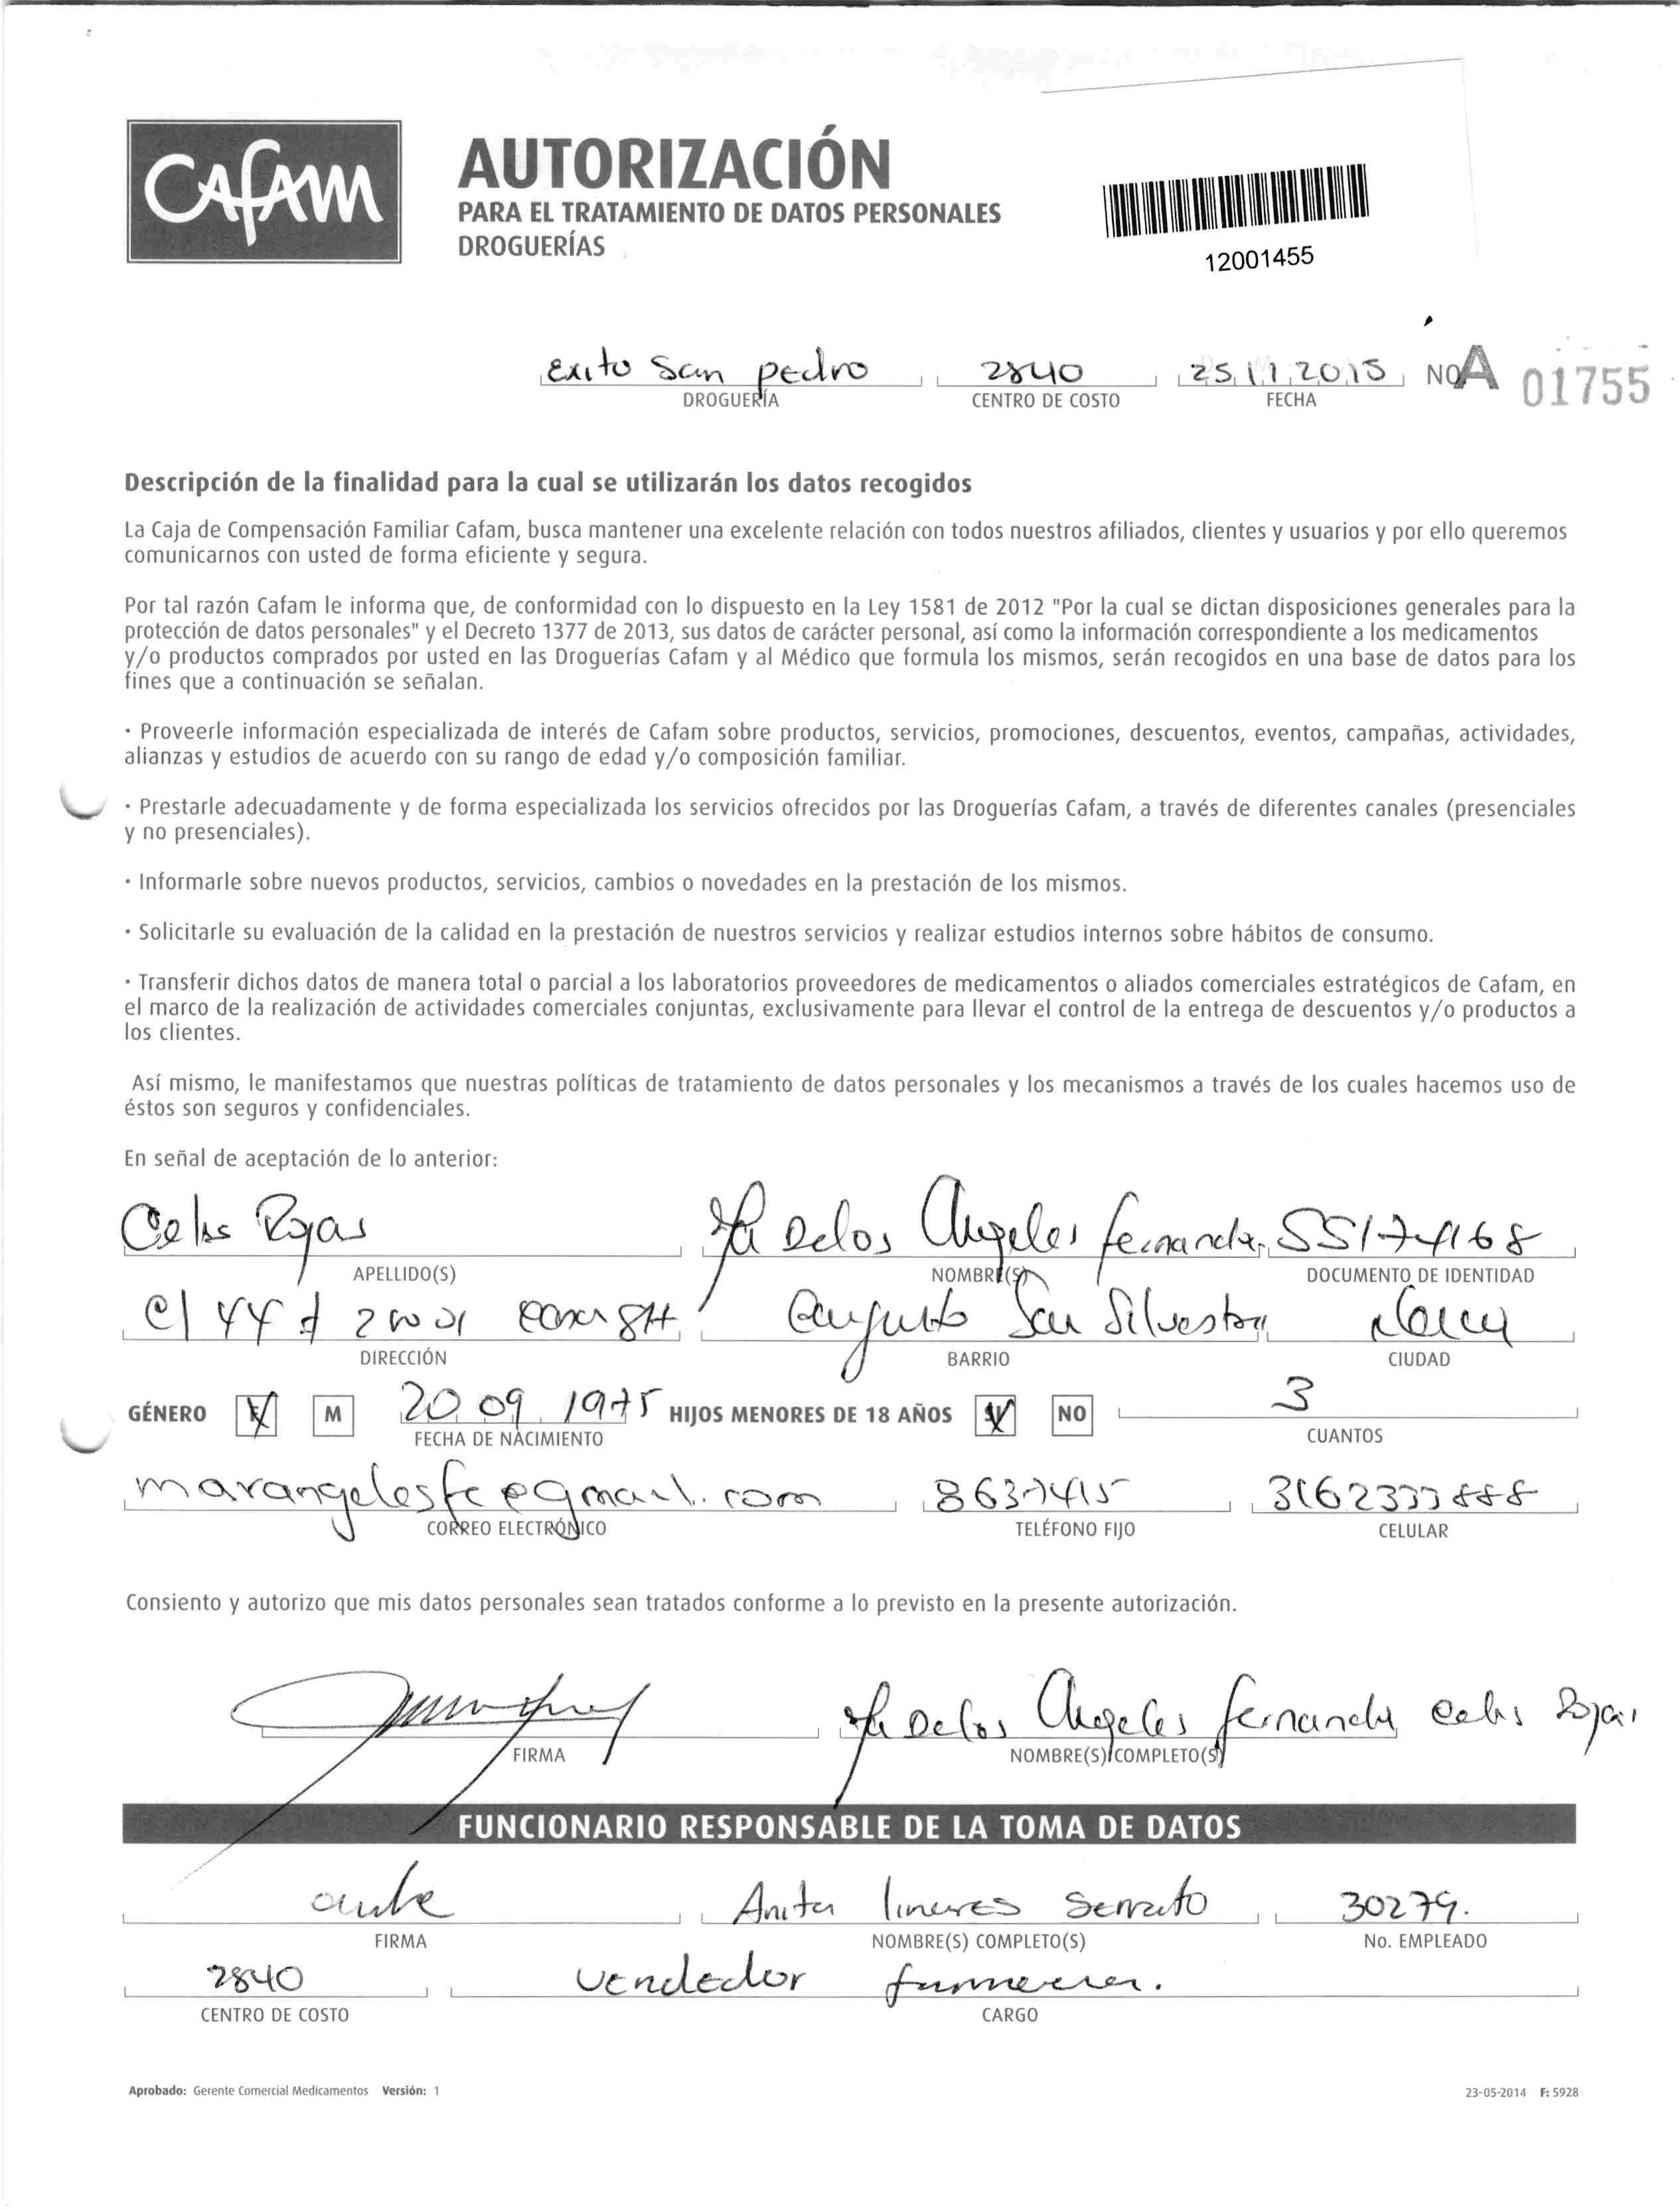 CAFAM
AUTORIZACIÓN
PARA EL TRATAMIENTO DE DATOS PERSONALES
DROGUERÍAS
12001455
Exito San pedro 2840 25 11 2015 NO A 01755
DROGUERÍA CENTRO DE COSTO FECHA
Descripción de la finalidad para la cual se utilizarán los datos recogidos
La Caja de Compensación Familiar Cafam, busca mantener una excelente relación con todos nuestros afiliados, clientes y usuarios y por ello queremos
comunicarnos con usted de forma eficiente y segura.
Por tal razón Cafam le informa que, de conformidad con lo dispuesto en la Ley 1581 de 2012 "Por la cual se dictan disposiciones generales para la
protección de datos personales" y el Decreto 1377 de 2013, sus datos de carácter personal, así como la información correspondiente a los medicamentos
y/o productos comprados por usted en las Droguerías Cafam y al Médico que formula los mismos, serán recogidos en una base de datos para los
fines que a continuación se señalan.
· Proveerle información especializada de interés de Cafam sobre productos, servicios, promociones, descuentos, eventos, campañas, actividades,
alianzas y estudios de acuerdo con su rango de edad y/o composición familiar.
· Prestarle adecuadamente y de forma especializada los servicios ofrecidos por las Droguerías Cafam, a través de diferentes canales (presenciales
y no presenciales).
· Informarle sobre nuevos productos, servicios, cambios o novedades en la prestación de los mismos.
· Solicitarle su evaluación de la calidad en la prestación de nuestros servicios y realizar estudios internos sobre hábitos de consumo.
· Transferir dichos datos de manera total o parcial a los laboratorios proveedores de medicamentos o aliados comerciales estratégicos de Cafam, en
el marco de la realización de actividades comerciales conjuntas, exclusivamente para llevar el control de la entrega de descuentos y/o productos a
los clientes.
Así mismo, le manifestamos que nuestras políticas de tratamiento de datos personales y los mecanismos a través de los cuales hacemos uso de
éstos son seguros y confidenciales.
En señal de aceptación de lo anterior:
Celis Rojas Ma Delos Angeles fernanda 55174168
APELLIDO(S) NOMBRE(S) DOCUMENTO DE IDENTIDAD
Cl 44 San Silvestre
DIRECCIÓN BARRIO CIUDAD
GÉNERO F M 20 09 1975 HIJOS MENORES DE 18 AÑOS SI NO 3
FECHA DE NACIMIENTO CUANTOS
marangelesfc@gmail.com 8637415 3162333888
CORREO ELECTRÓNICO TELÉFONO FIJO CELULAR
Consiento y autorizo que mis datos personales sean tratados conforme a lo previsto en la presente autorización.
Ma Delos Angeles fernanda Celis Rojas
FIRMA NOMBRE(S) COMPLETO(S)
FUNCIONARIO RESPONSABLE DE LA TOMA DE DATOS
Anita linares Serrato 30279.
FIRMA NOMBRE(S) COMPLETO(S) No. EMPLEADO
2840 Vendedor
CENTRO DE COSTO CARGO
Aprobado: Gerente Comercial Medicamentos Versión: 1 23-05-2014 F: 5928